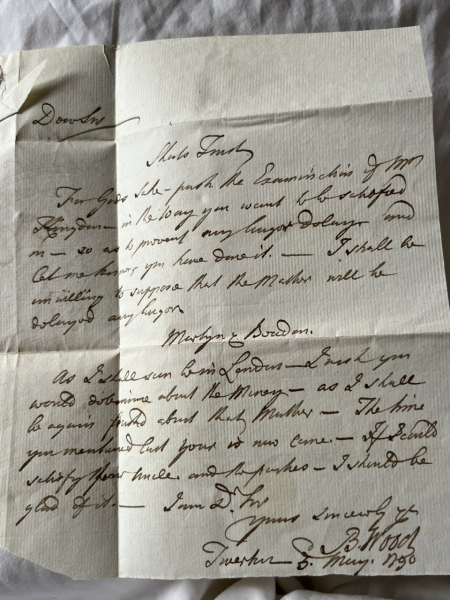 Dear Sir
Trust
For Gods sake – push the Examination of Mr
Kingdon – in the way you want to be satisfied
in – so as to prevent any longer delays and
let me know you have done it. — I shall be
unwilling to suppose that the Matter will be
delayed any longer
Martyn & Bowdon.
As I shall soon be in London – I wish you
would determine about the Money – as I shall
be again about that Matter – The time
you mentioned last is now come – If I could
satisfy your Uncle and he pushes – I should be
glad of it. — I am Dr. Sir
Yours sincerely &c
B Wood
Tiverton 5. May. 1790